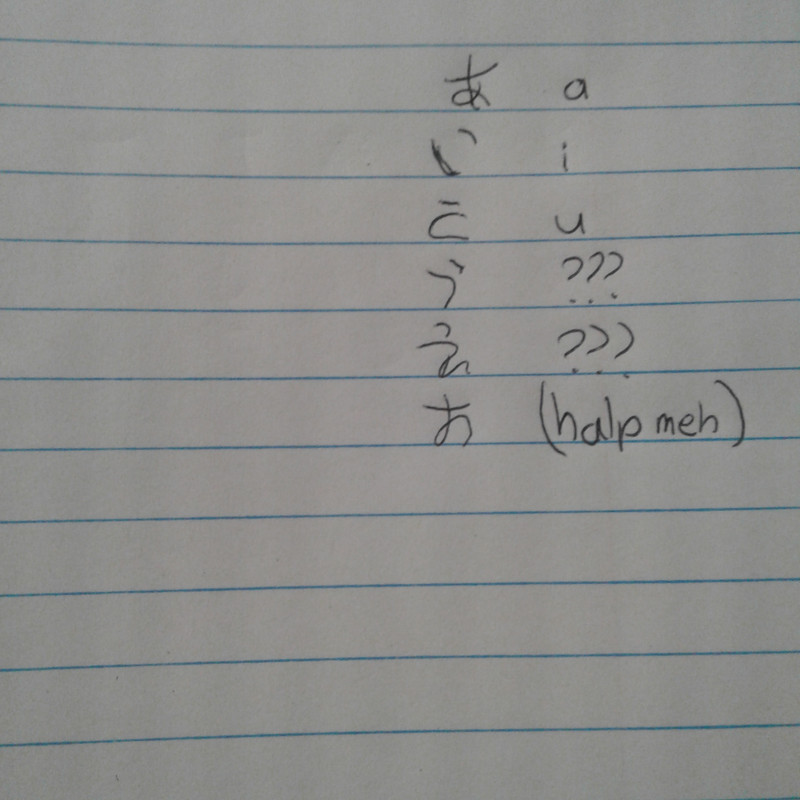 あ a
い i
u
う ???
え ???
お (halp meh)